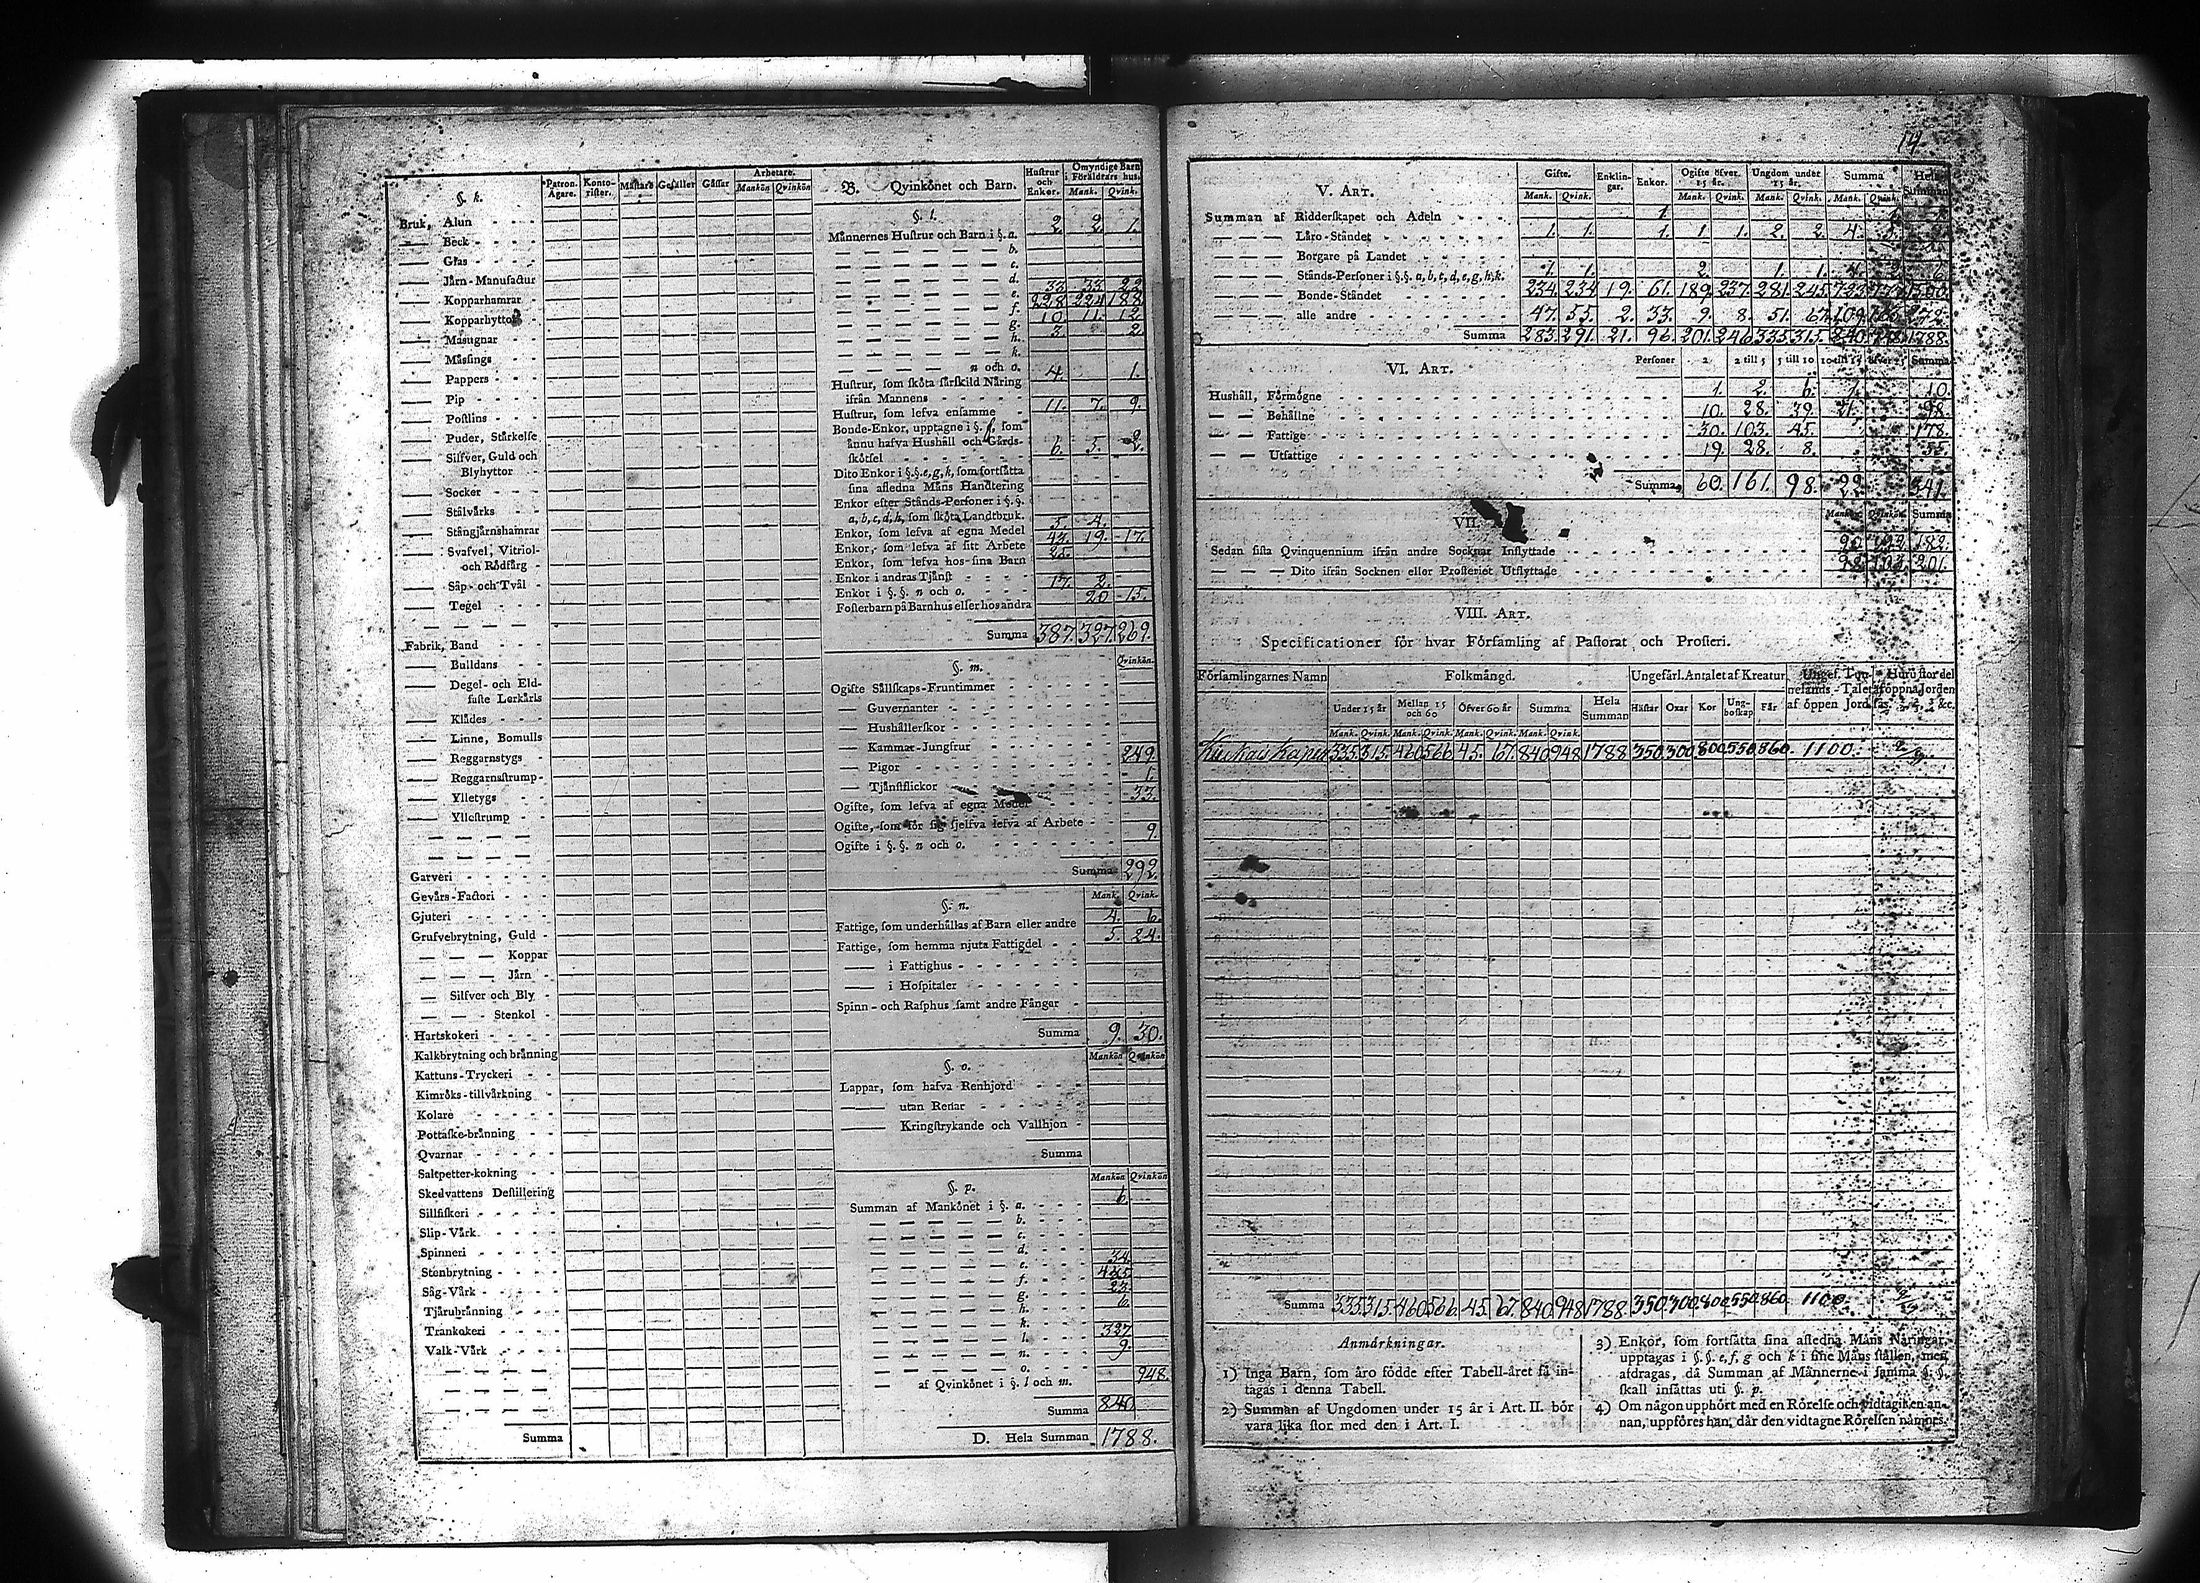 14.
§. k. Patron. Ägare. Konto-rister. Mästare Gesäller Gåssar Arbetare. Mankön Qvinkön
Bruk, Alun
Beck
Glas
Järn-Manufactur
Kopparhamrar
Kopparhyttor
Masugnar
Mässings
Pappers
Pip
Postlins
Puder, Stärkelse
Silfver, Guld och
Blyhyttor
Socker
Stålvärks
Stångjärnshamrar
Svafvel, Vitriol-
och Rödfärg
Såp- och Tvål
Tegel
Fabrik, Band
Bulldans
Degel- och Eld-
faste Lerkärls
Klädes
Linne, Bomulls
Reggarnstygs
Reggarnsstrump
Ylletygs
Yllestrump
Garveri
Gevärs-Factori
Gjuteri
Grufvebrytning, Guld
Koppar
Järn
Silfver och Bly
Stenkol
Hartskokeri
Kalkbrytning och bränning
Kattuns-Tryckeri
Kimröks-tillvärkning
Kolare
Pottaske-bränning
Qvarnar
Saltpetter-kokning
Skedvattens Destillering
Sillfiskeri
Slip-Värk
Spinneri
Stenbrytning
Såg-Värk
Tjärubränning
Trankokeri
Valk-Värk
Summa
B. Qvinkönet och Barn. Hustrur och Enkor. Omyndige Barn i Föräldrars hus. Mank. Qvink.
§. l.
Männernes Hustrur och Barn i §. a. 2. 2. 1.
b.
c.
d.
e. 33. 33. 22
f. 228. 224 188
g. 10. 11. 12
h. 3. 2
k.
n och o. 4. 1.
Hustrur, som sköta särskild Näring
ifrån Mannens
Hustrur, som lefva ensamme 11. 7. 9.
Bonde-Enkor, upptagne i §. f, som
ännu hafva Hushåll och Gårds-
skötsel 6. 5. 2.
Dito Enkor i §.§. e, g, k, som fortsätta
sina afledna Mäns Handtering
Enkor efter Stånds-Personer i §.§.
a, b, c, d, h, som sköta Landtbruk.
Enkor, som lefva af egna Medel 5. 4.
Enkor, som lefva af sitt Arbete 19. 17.
Enkor, som lefva hos sina Barn
Enkor i andras Tjänst
Enkor i §.§. n och o. 17. 2.
Fosterbarn på Barnhus eller hos andra 20 15.
Summa 387. 327. 269.
§. m. Qvinkön.
Ogifte Sällskaps-Fruntimmer
Guvernanter
Hushållerskor
Kammar-Jungfrur
Pigor 249.
Tjänstflickor 1.
Ogifte, som lefva af egna Medel 33.
Ogifte, som för sig sjelfva lefva af Arbete
Ogifte i §.§. n och o. 9.
Summa 292.
§. n. Mank. Qvink.
Fattige, som underhållas af Barn eller andre 4. 6.
Fattige, som hemma njuta Fattigdel 5. 24.
i Fattighus
i Hospitaler
Spinn- och Rasphus samt andre Fångar
Summa 9. 30.
§. o. Mankön Qvinkön
Lappar, som hafva Renhjord
utan Renar
Kringstrykande och Vallhjon
Summa
§. p. Mankön Qvinkön
Summan af Mankönet i §. a. 6.
b.
c.
d.
e. 34.
f.
g. 23.
h. 6.
k.
l. 327.
n. 9.
o.
af Qvinkönet i §. l och m. 948.
Summa 840
D. Hela Summan 1788.
V. Art. Gifte. Enklin-gar. Enkor. Ogifte öfver 15 år. Ungdom under 15 år. Summa Hela Summan
Mank. Qvink. Mank. Qvink. Mank. Qvink. Mank. Qvink.
Summan af Ridderskapet och Adeln 1. 1. 1.
Läro-Ståndet 1. 1. 1. 1. 1. 2. 2. 4. 5. 9.
Borgare på Landet
Stånds-Personer i §.§. a, b, c, d, e, g, h, k. 1. 1. 2. 1. 1. 4. 2. 6.
Bonde-Ståndet 234. 234 19. 61. 189. 237. 281. 245. 723. 777. 1500.
alle andre 47. 55. 2. 33. 9. 8. 51. 67. 109. 163. 272.
Summa 283. 291. 21. 96. 201. 246 335. 315. 840. 948. 1788.
VI. Art. Personer 2 2 till 5 5 till 10 10 till 15 öfver 15 Summa
Hushåll, Förmögne 1. 2. 6. 1. 10.
Behållne 10. 28. 39. 21. 98.
Fattige 30. 103. 45. 178.
Utfattige 19. 28. 8. 55.
Summa 60. 161. 98. 22. 341.
VII. Mankön. Qvinkön. Summa
Sedan sista Qvinquennium ifrån andre Socknar Inflyttade 90. 92 182.
Dito ifrån Socknen eller Prosteriet Utflyttade 98 103. 201.
VIII. Art.
Specificationer för hvar Församling af Pastorat och Prosteri.
Församlingarnes Namn Folkmängd. Ungefärl. Antalet af Kreatur Ungef. Tun-nelands-Talet af öppen Jord. Huru stor del af öppna Jorden
Under 15 år Mellan 15 och 60 Öfver 60 år Summa Hela Summan Hästar Oxar Kor Ung-boskap Får
Mank. Qvink. Mank. Qvink. Mank. Qvink. Mank. Qvink.
335. 315. 460 566 45. 67. 840 948 1788 350 300 800 550 860 1100.
Summa 335 315. 460 566. 45. 67. 840. 948 1788. 350. 300. 800 550 860 1100.
Anmärkningar.
1) Inga Barn, som äro födde efter Tabell-året få in-
tagas i denna Tabell.
2) Summan af Ungdomen under 15 år i Art. II. bör
vara lika stor med den i Art. I.
3) Enkor, som fortsätta sina afledna Mäns Näringar,
upptagas i §.§. e, f, g och k i sine Mäns ställen, men
afdragas, då Summan af Männerne i samma §.§.
skall insättas uti §. p.
4) Om någon upphört med en Rörelse och vidtagit en an-
nan, uppföres han, där den vidtagne Rörelsen nämnes.